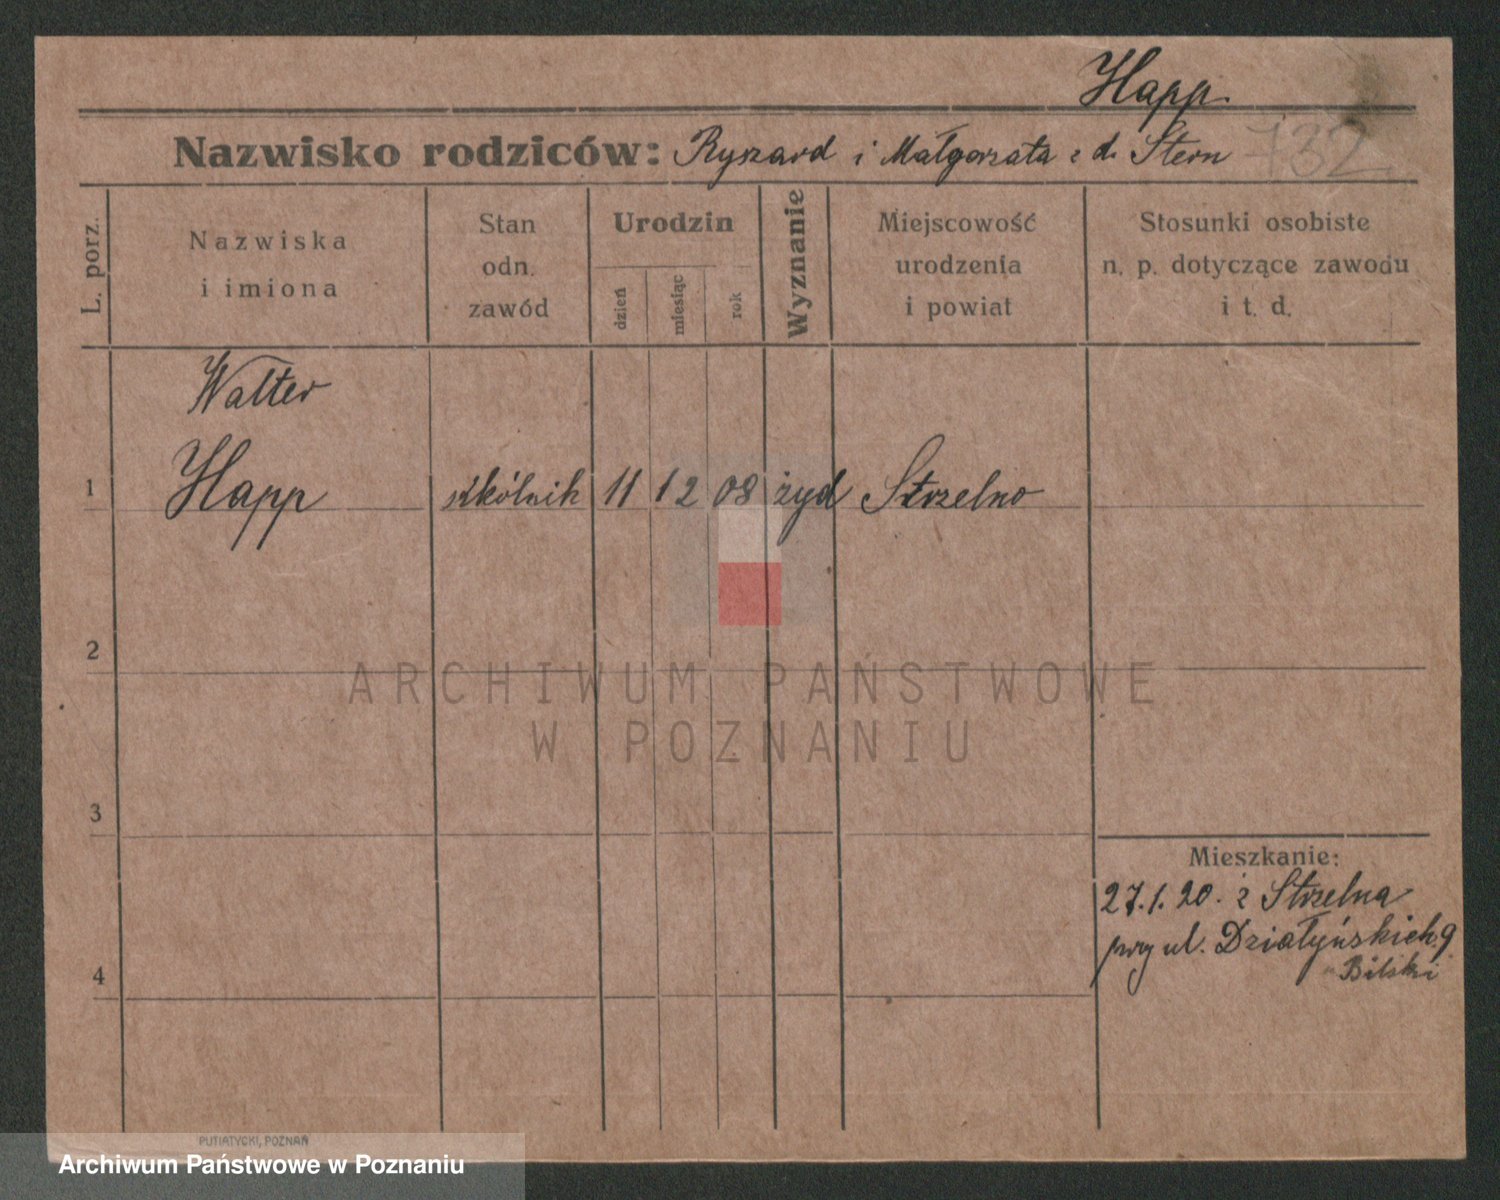 Happ.
Nazwisko rodziców: Ryszard i Małgorzata z d. Stern 732
L. porz.
Nazwiska
i imiona
Stan
odn.
zawód
Urodzin
dzień
miesiąc
rok
Wyznanie
Miejscowość
urodzenia
i powiat
Stosunki osobiste
n. p. dotyczące zawodu
i t. d.
Walter
1 Happ szkólnik 11 12 08 żyd Strzelno
2
ARCHIWUM PAŃSTWOWE
W POZNANIU
3
Mieszkanie:
27.1.20. z Strzelna
przy ul. Działyńskich 9
Bilski
4
PUTIATYCKI, POZNAŃ
Archiwum Państwowe w Poznaniu